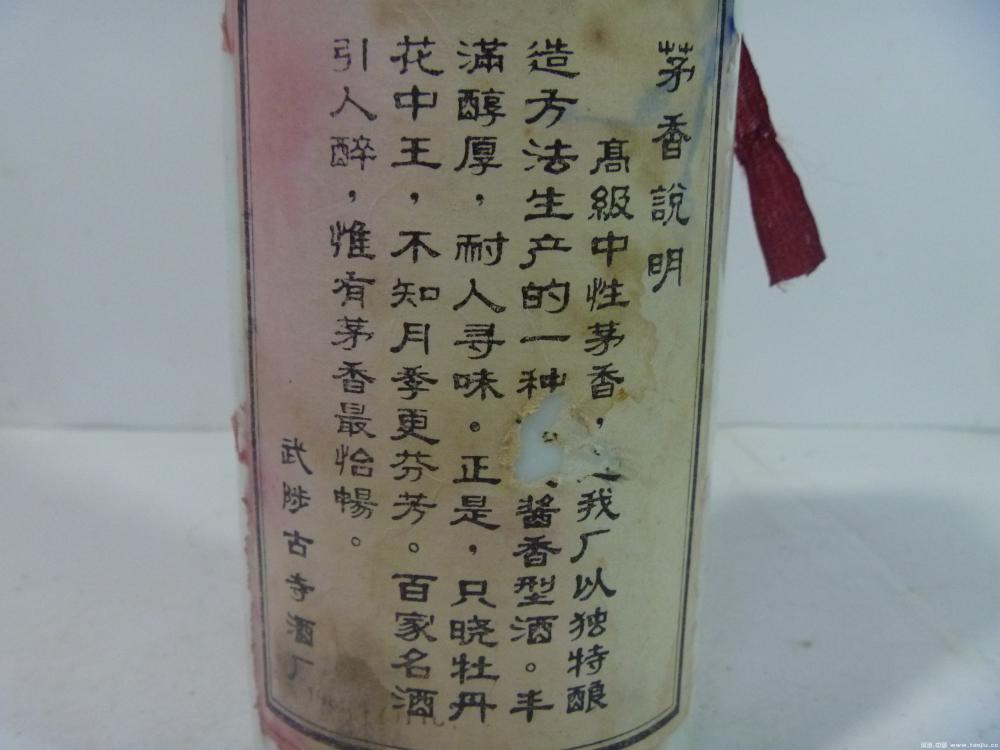 茅香說明
高級中性茅香，是我厂以独特酿
造方法生产的一种酱香型酒。丰
滿醇厚，耐人寻味。正是，只晓牡丹
花中王，不知月季更芬芳。百家名酒
引人醉，惟有茅香最怡暢。
武陟古寺酒厂
www.tsmjiu.cn